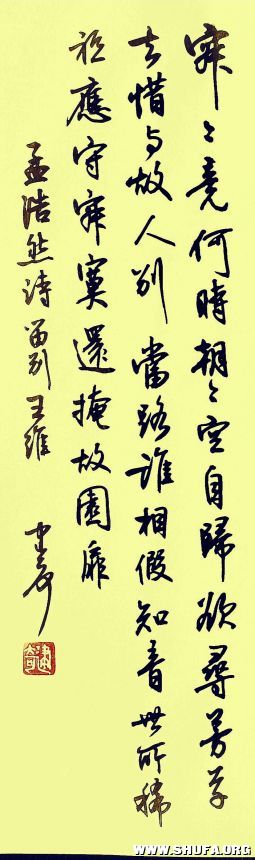 寂〻竟何時朝〻空自歸欲尋芳草
去惜与故人别當路誰相假知音世所稀
祇應守寂寞還掩故園扉
孟浩然詩留别王維
WWW.SHUFA.ORG